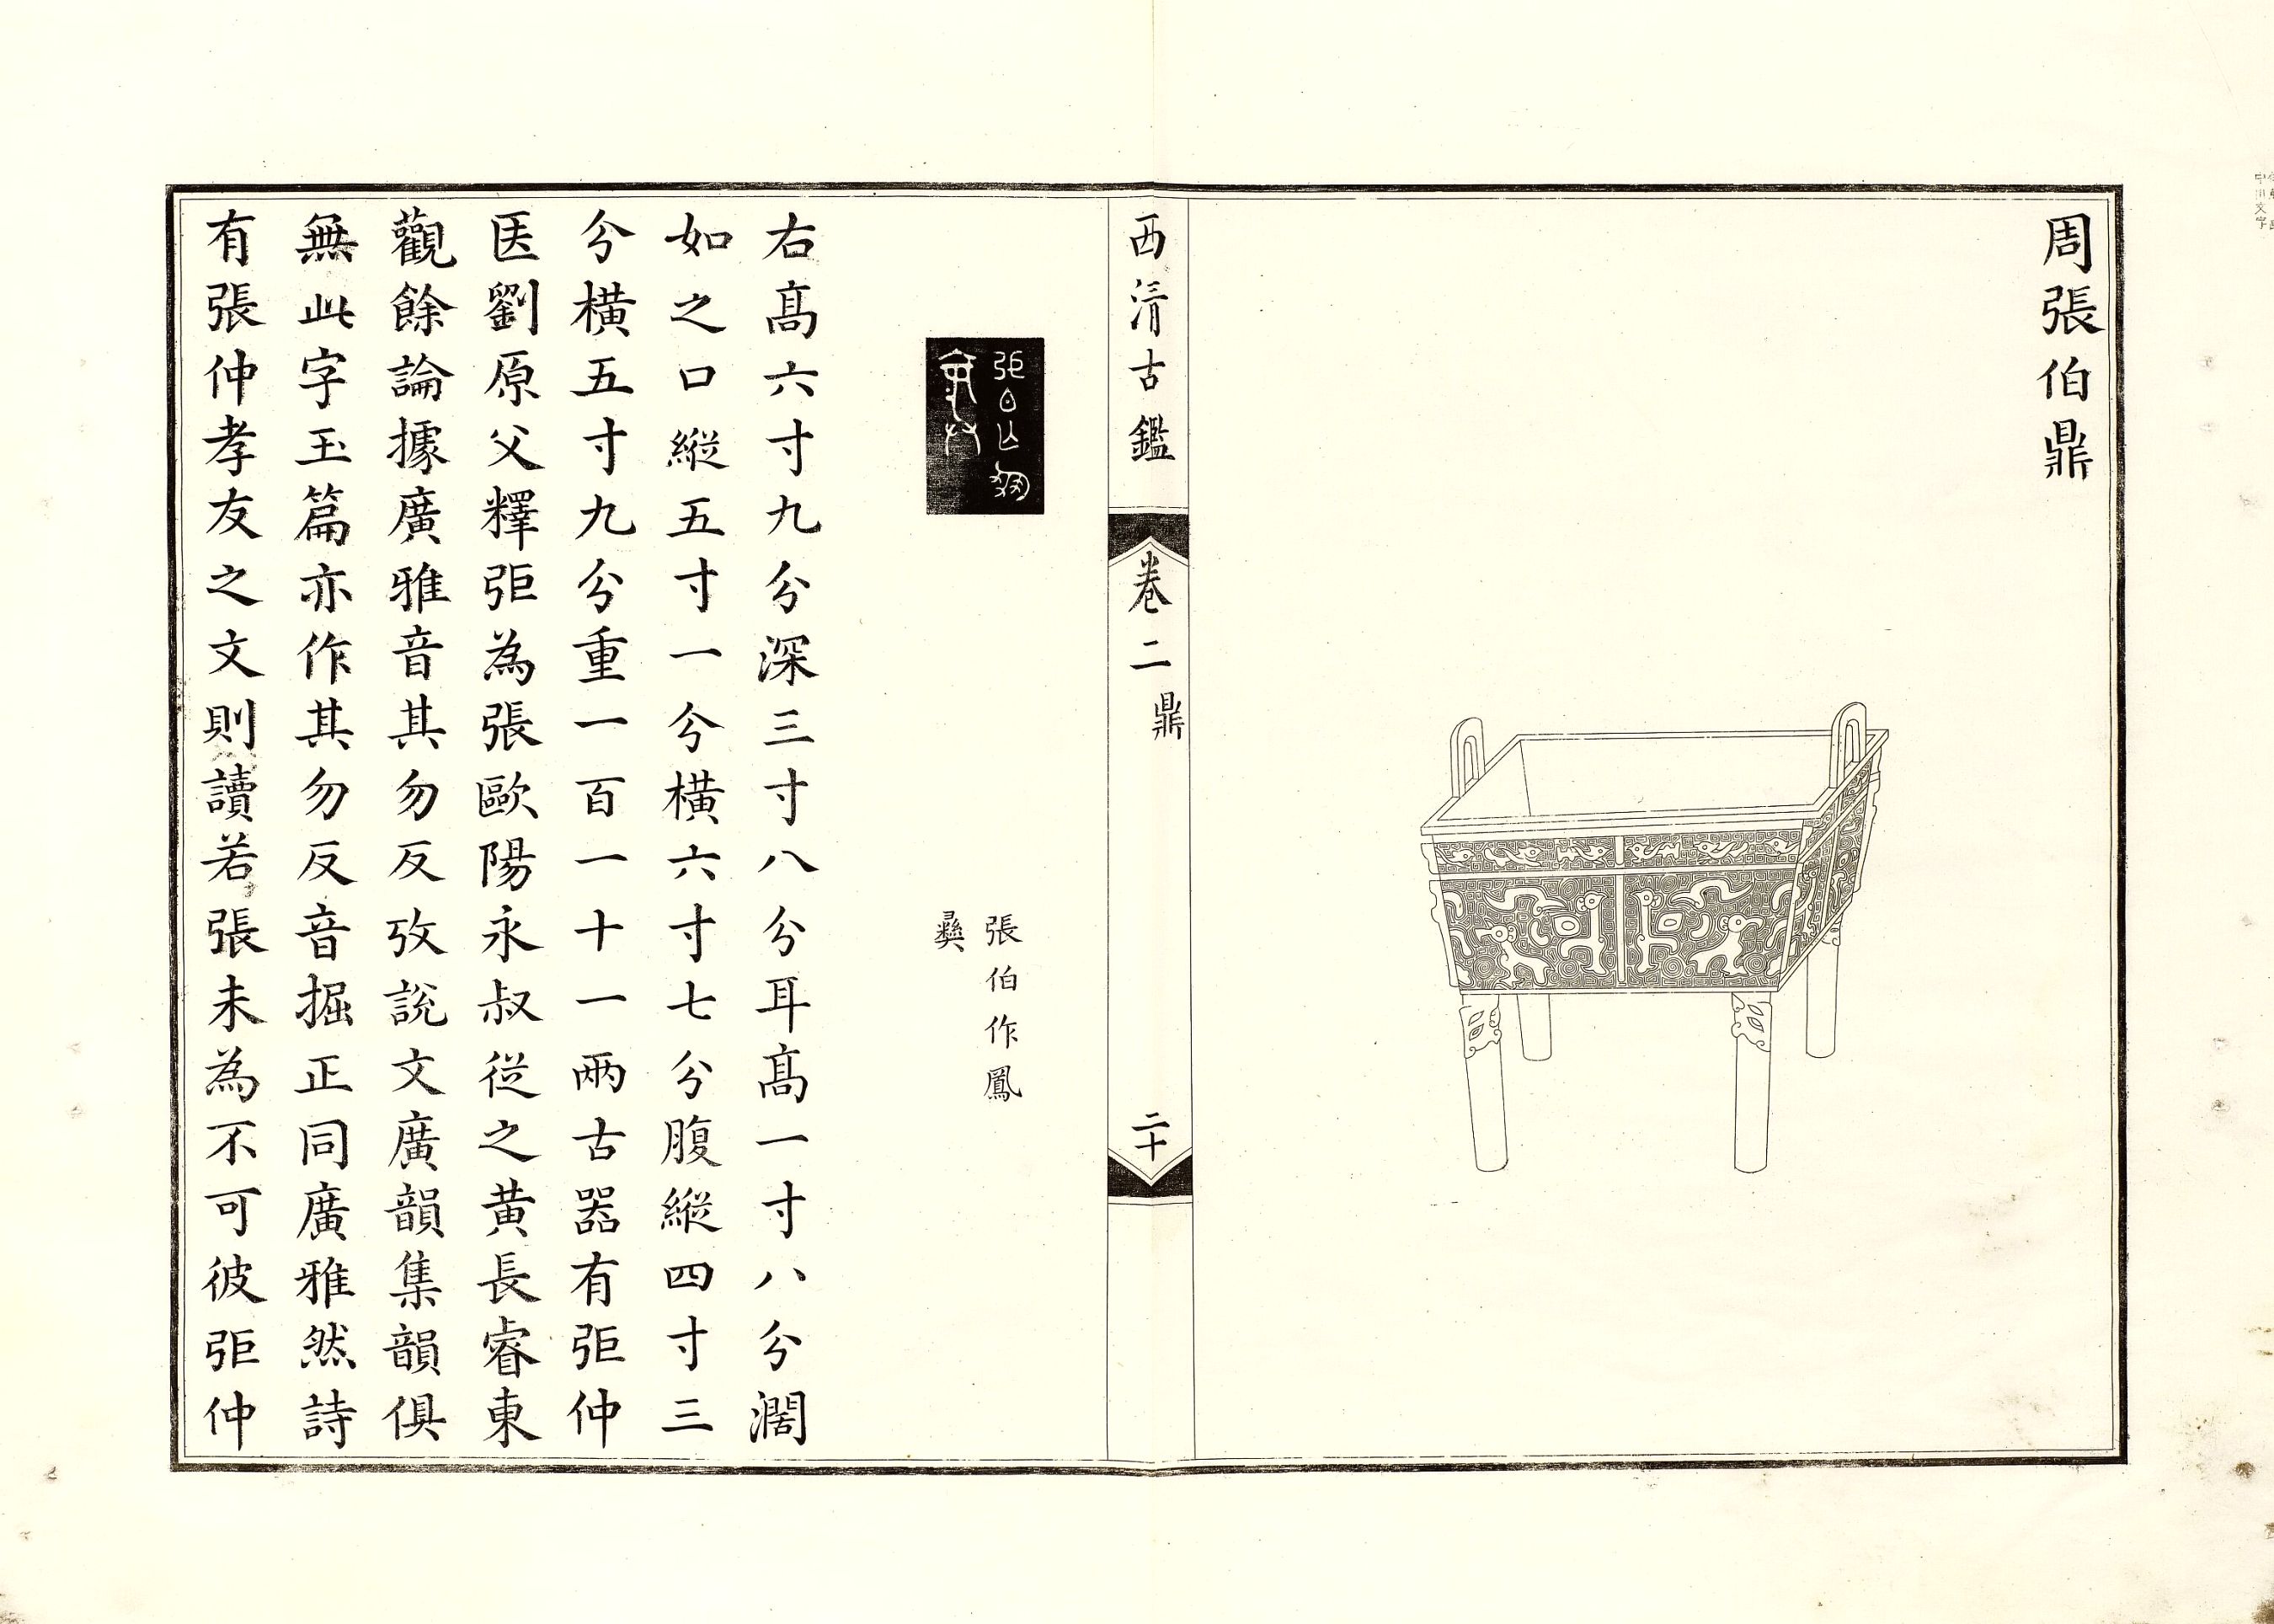 周張伯鼎
西清古鑑
卷二
鼎
二十
張伯作鳳
彝
右高六寸九分深三寸八分耳高一寸八分濶
如之口縱五寸一分橫六寸七分腹縱四寸三
分橫五寸九分重一百一十一兩古器有弡仲
匡劉原父釋弡為張歐陽永叔從之黃長睿東
觀餘論據廣雅音其勿反攷說文廣韻集韻俱
無此字玉篇亦作其勿反音掘正同廣雅然詩
有張仲孝友之文則讀若張未為不可彼弡仲